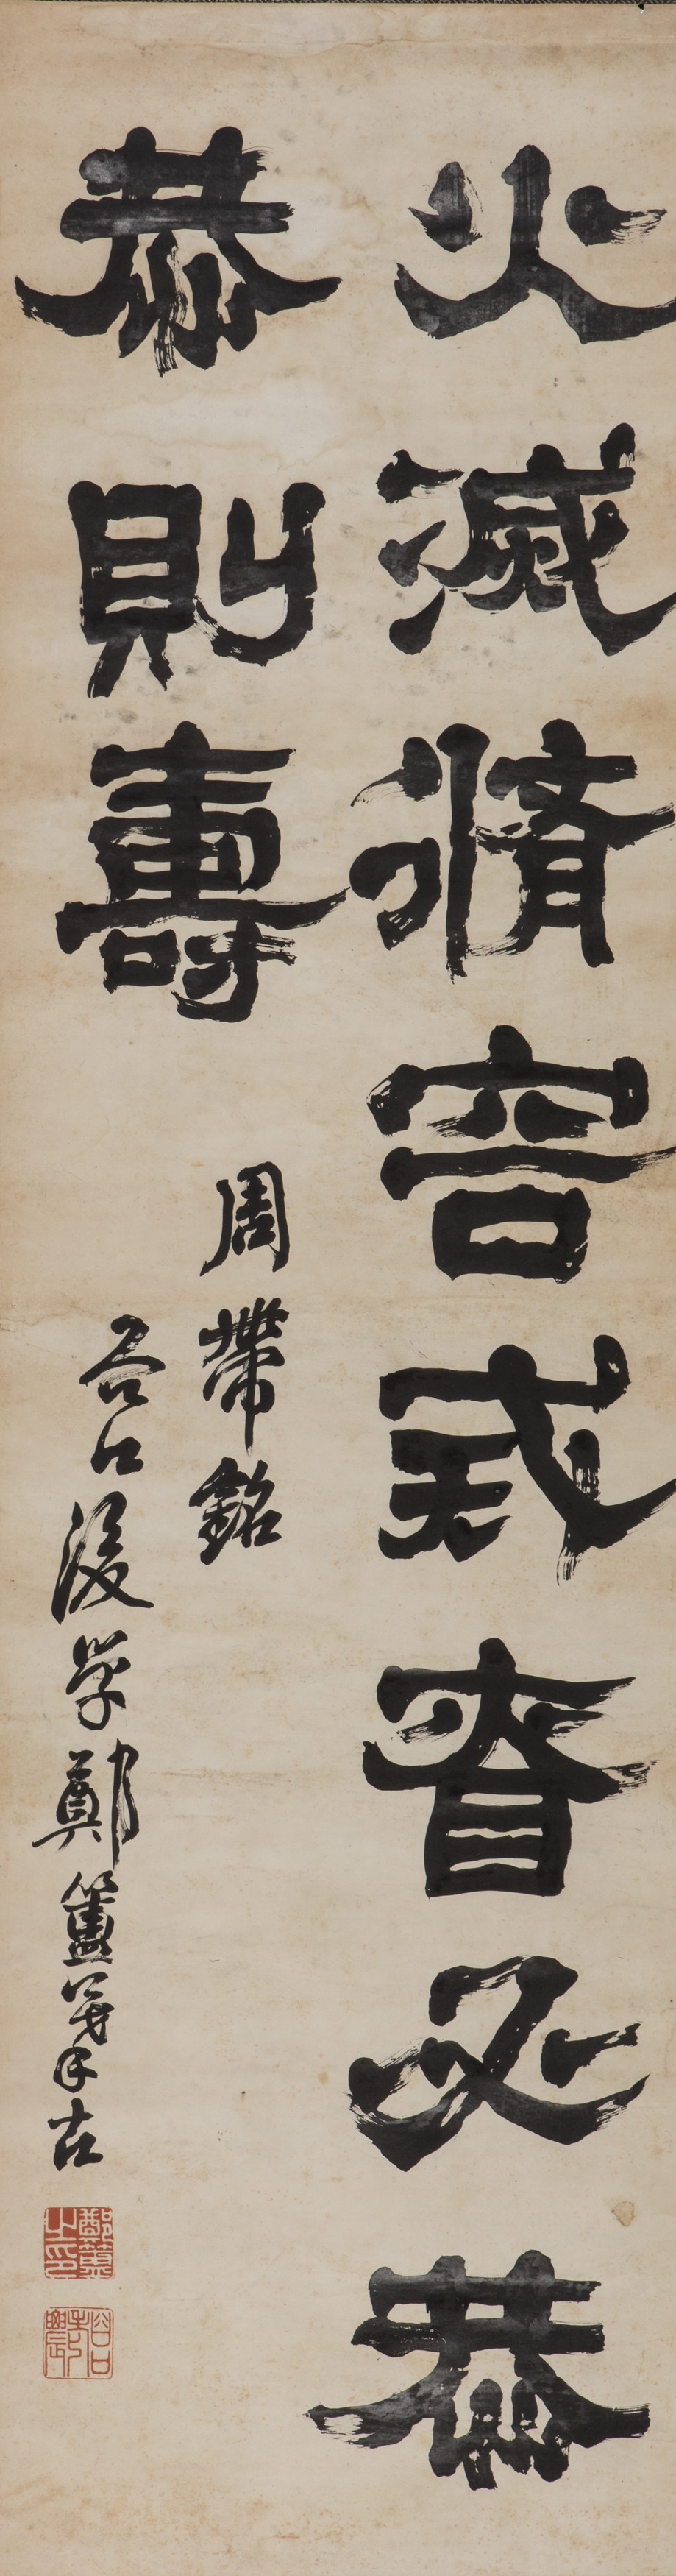 火滅脩容戒昚必恭
恭則壽
周帶銘
谷口後学鄭簠摹古
鄭簠之印
谷口